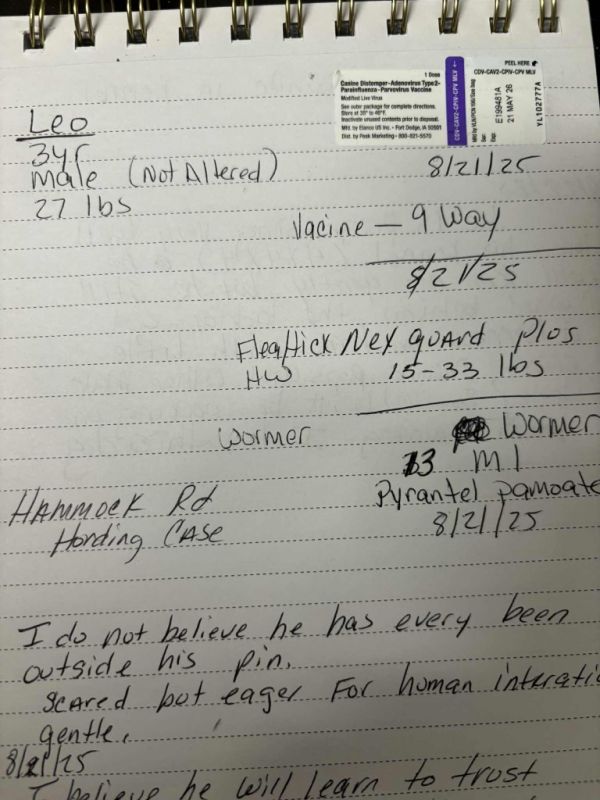 1 Dose
Canine Distemper-Adenovirus Type 2-
Parainfluenza-Parvovirus Vaccine
Modified Live Virus
See outer package for complete directions.
Store at 35° to 46°F.
Inactivate unused contents prior to disposal.
Mfd. by Elanco US Inc. • Fort Dodge, IA 50501
Dist. by Peak Marketing • 800-821-5570
CDV-CAV2-CPIV-CPV MLV
PEEL HERE
CDV-CAV2-CPIV-CPV MLV
Ser:
E199481A
Exp:
21 MAY 26
YL102777A
Leo
3yr
male (Not Altered)
27 lbs
8/21/25
Vacine — 9 Way
8/21/25
Flea/tick Nex guard plus
HW 15-33 lbs
Wormer Wormer
13 Ml
Pyrantel pamoate
8/21/25
Hammock Rd
Hording Case
I do not believe he has every been
outside his pin.
Scared but eager For human interatio
gentle.
8/21/25
I believe he will learn to trust